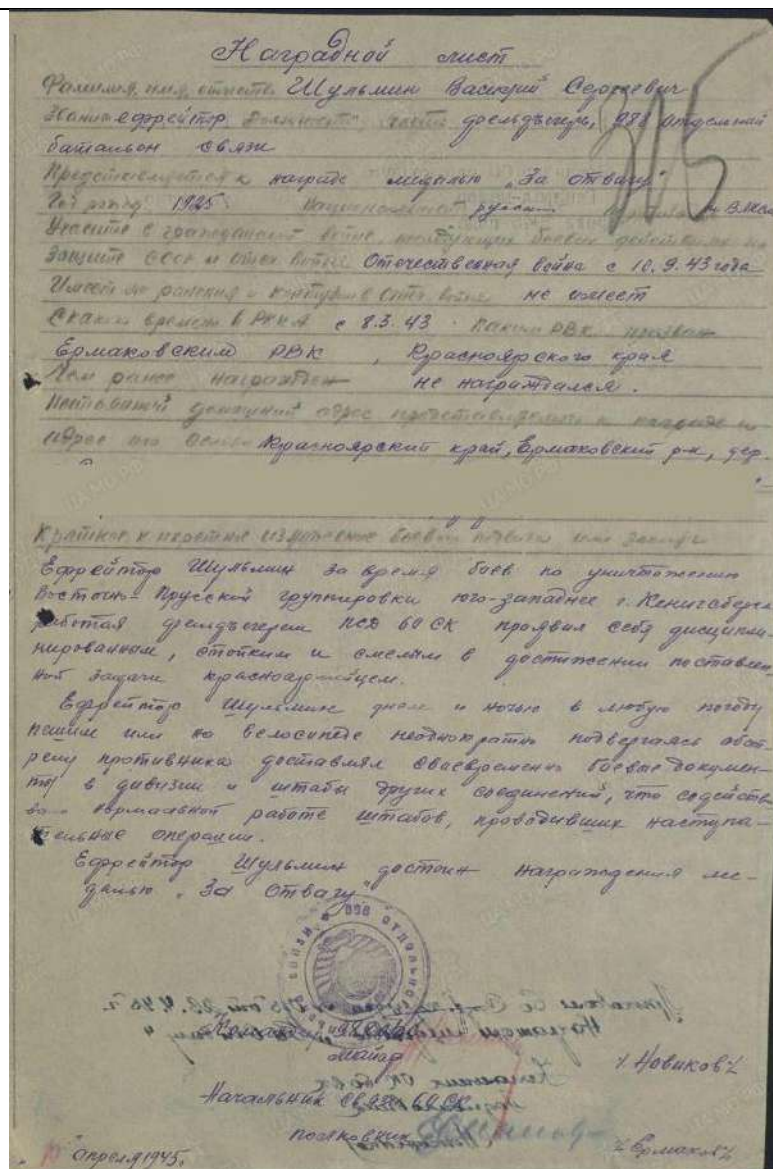 Наградной лист
Фамилия, имя, отчество Шульмин Василий Сергеевич
Звание ефрейтор Должность, часть фельдъегерь, 988 отдельный
батальон связи
Представляется к награде медалью „За отвагу"
Год рожд. 1925 Национальность русский
Участие в гражданской войне, последующих боевых действиях по
защите СССР и отеч. войне Отечественная война с 10.9.43 года
Имеет ли ранения и контузии в отеч. войне не имеет
С какого времени в РККА с 8.3.43 Каким РВК призван
Ермаковским РВК, Красноярского края
Чем ранее награжден не награждался.
Постоянный домашний адрес представляемого к награде и
адрес его Красноярский край, Ермаковский р-н, дер.
Краткое, конкретное изложение боевого подвига или заслуг
Ефрейтор Шульмин за время боев по уничтожению
Восточно-Прусской группировки юго-западнее г. Кенигсберга
работая фельдъегерем ПСД 60 СК проявил себя дисципли-
нированным, стойким и смелым в достижении поставлен-
ной задачи красноармейцем.
Ефрейтор Шульмин днем и ночью в любую погоду
пешим или на велосипеде неоднократно подвергаясь обст-
релу противника доставлял своевременно боевые докумен-
ты в дивизии и штабы других соединений, что содейств
нормальной работе штабов, проводивших наступа-
тельные операции.
Ефрейтор Шульмин достоин награждения ме-
далью „За отвагу"
Майор
/Новиков/
Начальник связи 60 СК
полковник
/Ермаков/
апреля 1945.
305